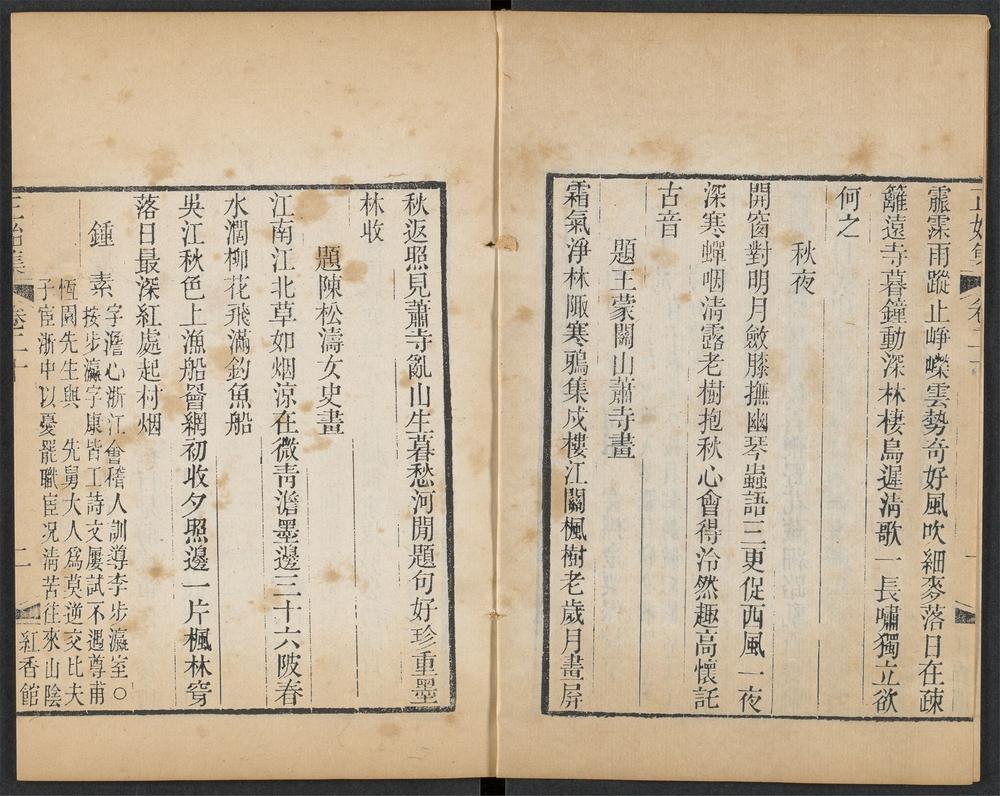 正始集 卷二十
霢霂雨蹤止崢嶸雲勢奇好風吹細麥落日在疎
籬遠寺暮鐘動深林棲鳥遲淸歌一長嘯獨立欲
何之
秋夜
開窗對明月斂膝撫幽琴蟲語三更促西風一夜
深寒蟬咽淸露老樹抱秋心會得泠然趣高懷託
古音
題王蒙關山蕭寺畫
霜氣淨林陬寒鴉集戍樓江關楓樹老歲月畫屛
秋返照見蕭寺亂山生暮愁河閒題句好珍重墨
林收
題陳松濤女史畫
江南江北草如烟涼在微靑澹墨邊三十六陂春
水濶柳花飛滿釣魚船
吳江秋色上漁船罾網初收夕照邊一片楓林穿
落日最深紅處起村烟
鍾素
字澹心浙江會稽人訓導李步瀛室〇
按步瀛字康皆工詩文屢試不遇尊甫
恆園先生與 先舅大人爲莫逆交比夫
子宦浙中以憂罷職宦况淸苦往來山陰
正始集 卷二十 二 紅香館